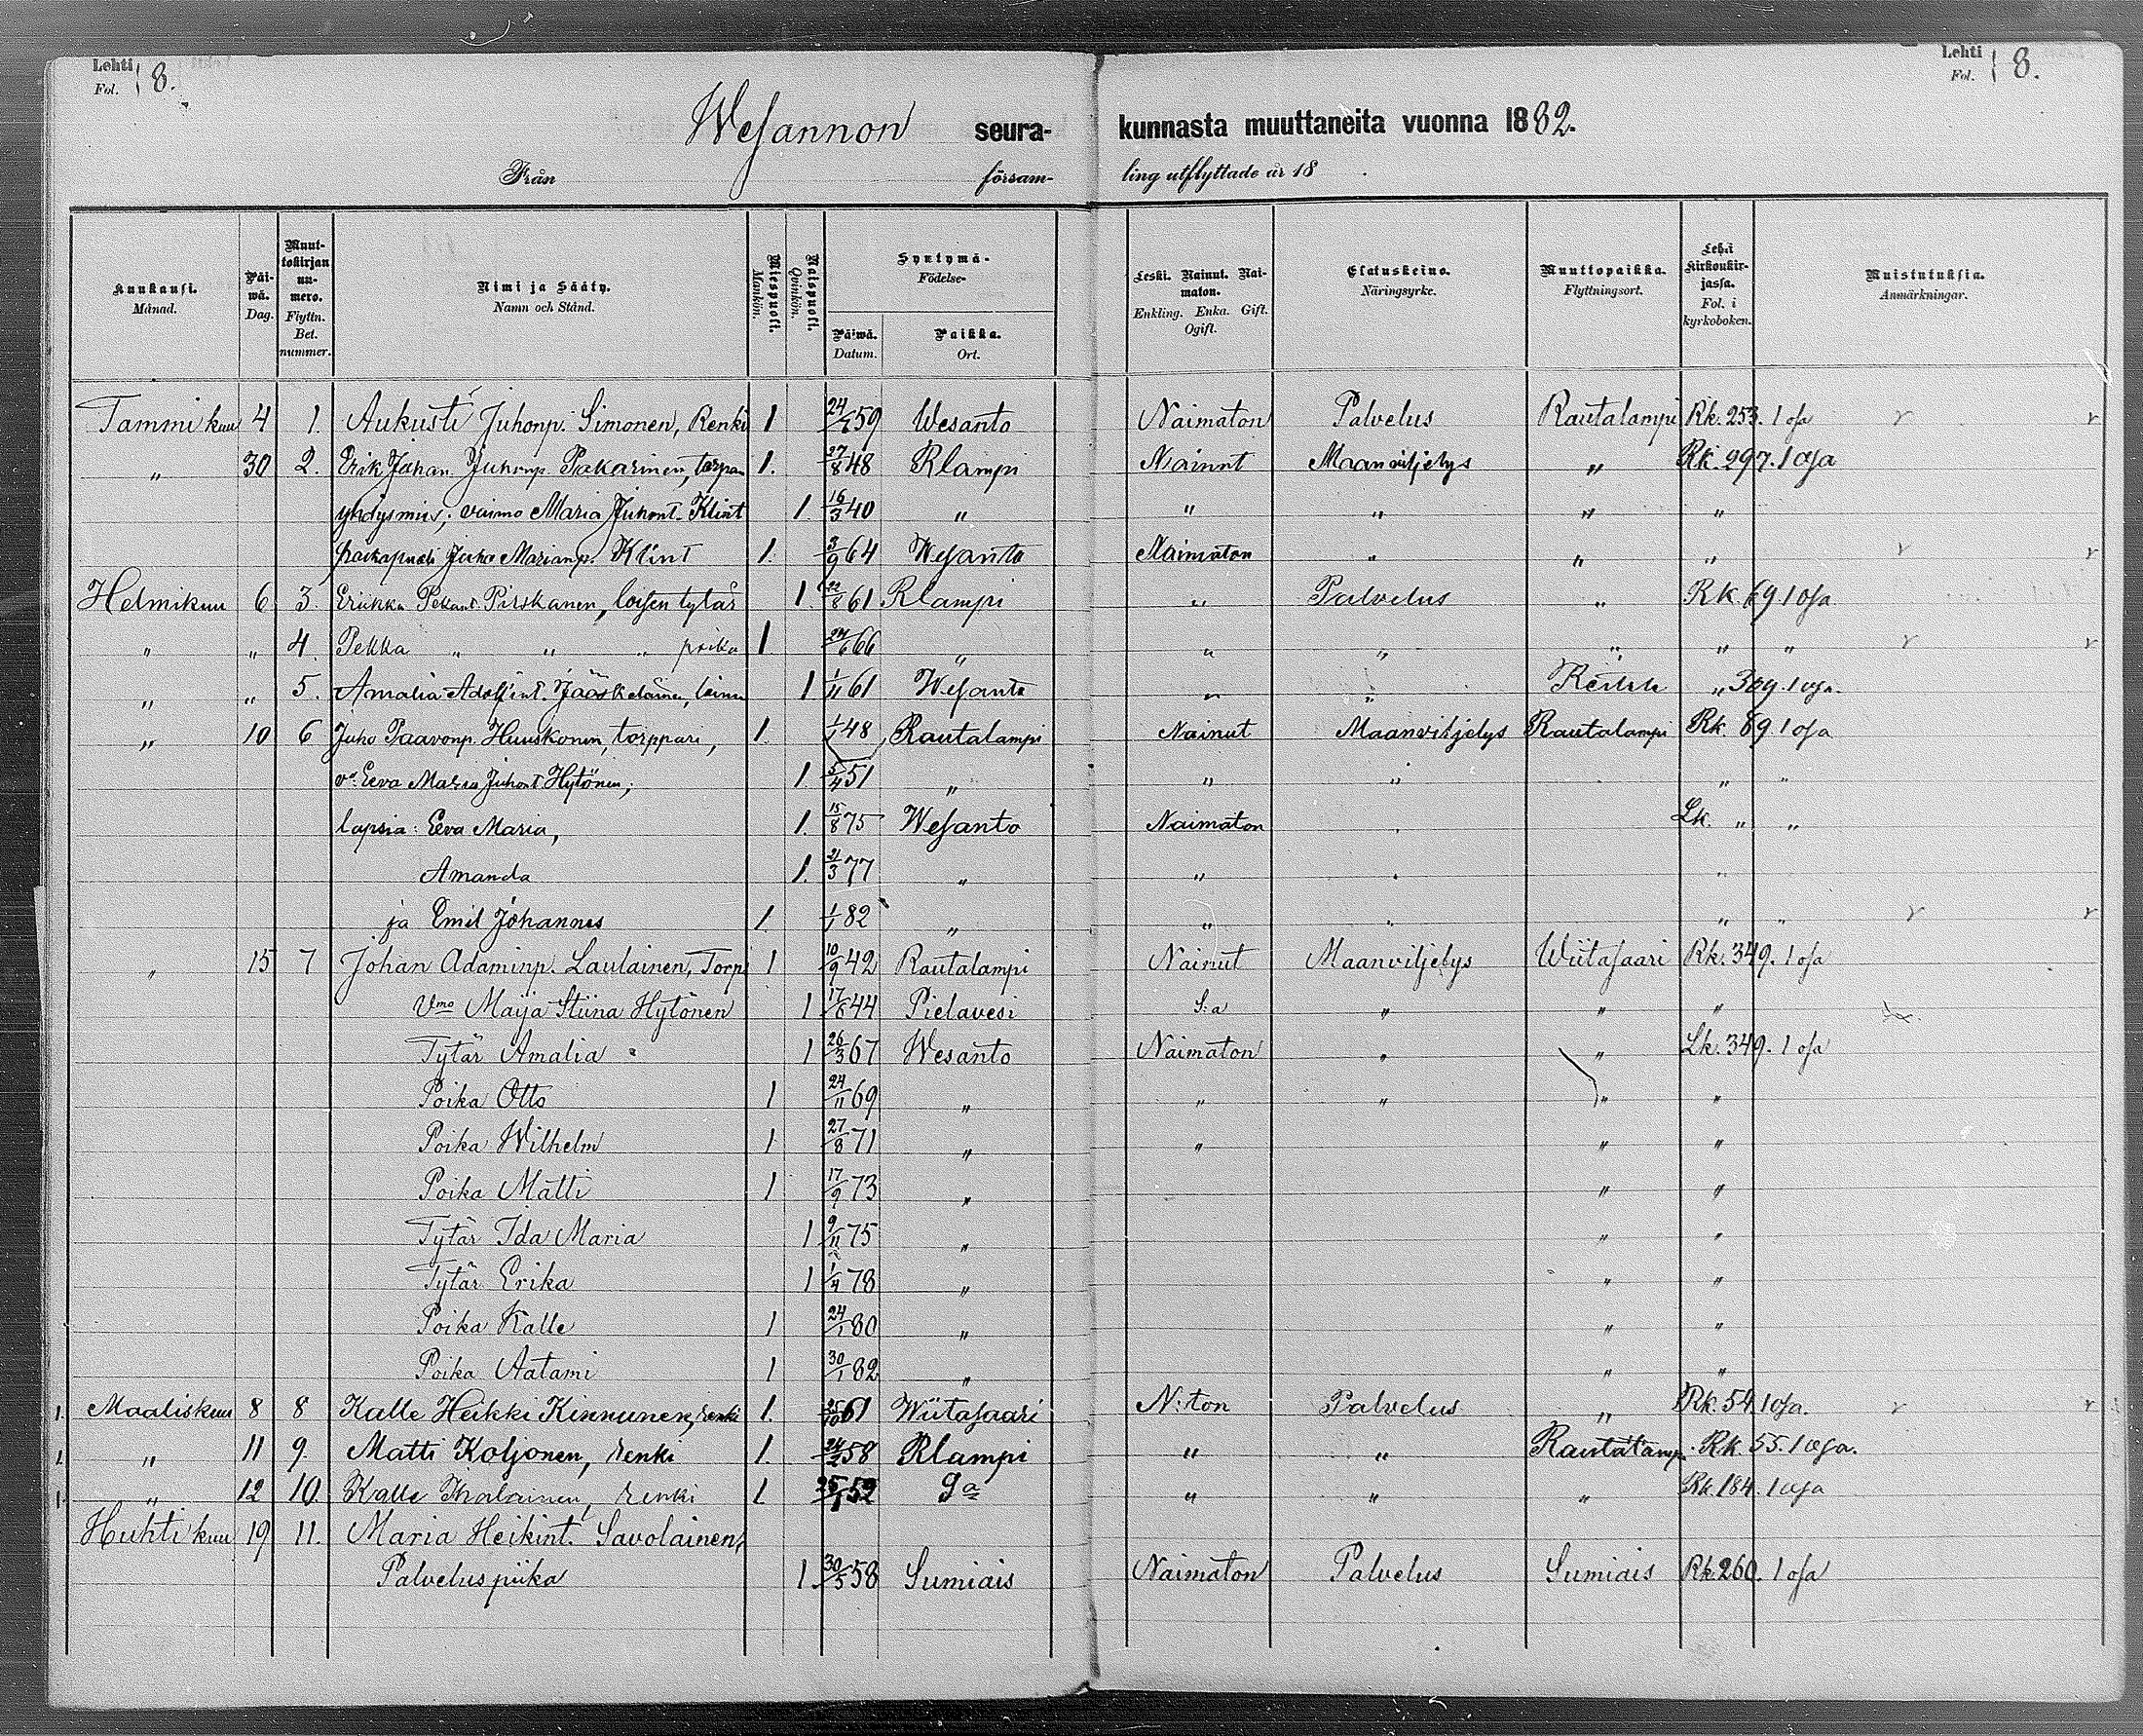 Lehti Fol. 8.
Lehti Fol. 8.
Wesannon seurakunnasta muuttaneita vuonna 1882.
Från församling utflyttade år 18 .
Kuukausi. Månad. Päiwä. Dag. Muuttokirjan numero. Flyttn. Bet. nummer. Nimi ja Sääty. Namn och Stånd. Miespuoli. Mankön. Naispuoli. Qvinkön. Syntymä- Födelse- Päiwä. Datum. Paikka. Ort. Leski. Nainut. Naimaton. Enkling. Enka. Gift. Ogift. Elatuskeino. Näringsyrke. Muuttopaikka. Flyttningsort. Lehti kirkonkirjassa. Fol. i kyrkoboken. Muistutuksia. Anmärkningar.
Tammikuu 4 1. Aukusti Juhonp. Simonen, Renki 1 59 Wesanto Naimaton Palvelus Rautalampi Rk. 253. 1 osa
„ 30 2. Erik Johan Juhonp. Pakarinen, torpan 1. 27/8 48 Rlampi Nainut Maanviljelys „ Rk. 297. 1 osa
yhdysmies; vaimo Maria Juhont. Klint 1. 16/3 40 „ „ „ „ „
poikapuoli Juho Marianp. Klint 1. 3/9 64 Wesanto Naimaton „ „ „
Helmikuu 6 3. Eriikka Pekant. Piiskanen, loisen tytär 1. 22/8 61 Rlampi „ Palvelus „ Rk. 69 1 osa
„ „ 4. Pekka „ „ „ poika 1. 66 „ „ „ „ „ „
„ „ 5. Amalia Adolfint. Jääskeläinen, 1 1/11 61 Wesanto „ „ „ 309. 1 osa.
„ 10 6 Juho Paavonp. Huuskonen, torppari, 1. 1/1 48 Rautalampi Nainut Maanviljelys Rautalampi Rk. 89. 1 osa
vo. Eeva Maria Juhont. Hytönen; 1. 5/4 51 „ „ „ „ „
lapsia: Eeva Maria, 1. 15/8 75 Wesanto Naimaton Lk. „ „
Amanda 1. 21/3 77 „ „ „
ja Emil Johannes 1 1/1 82 „ „ „ „
„ 15 7 Johan Adaminp. Laulainen, Torp. 1 10/9 42 Rautalampi Nainut Maanviljelys Wiitasaari Rk. 349. 1 osa
Vmo Maija Stiina Hytönen 1 17/8 44 Pielavesi S:a „ „ „
Tytär Amalia 1 26/3 67 Wesanto Naimaton „ „ Lk. 349. 1 osa
Poika Otto 1 24/11 69 „ „ „ „ „
Poika Wilhelm 1 27/8 71 „ „ „ „
Poika Matti 1 17/9 73 „ „ „
Tytär Ida Maria 1 9/11 75 „ „ „
Tytär Erika 1 1/4 78 „ „ „
Poika Kalle 1 24/1 80 „ „ „
Poika Aatami 1 30/1 82 „ „ „
1. Maaliskuu 8 8 Kalle Heikki Kinnunen, renki 1. 61 Wiitasaari N:ton Palvelus „ Rk. 54. 1 osa.
1. „ 11 9. Matti Koljonen, renki 1. 58 Rlampi „ „ Rautalamp. Rk. 55. 1 osa.
1. „ 12 10. Kalle renki 1 52 „ „ „ Rk. 184. 1 osa
Huhtikuu 19 11. Maria Heikint. Savolainen,
Palveluspiika 1. 30/3 58 Sumiais Naimaton Palvelus Sumiais Rk. 260. 1 osa